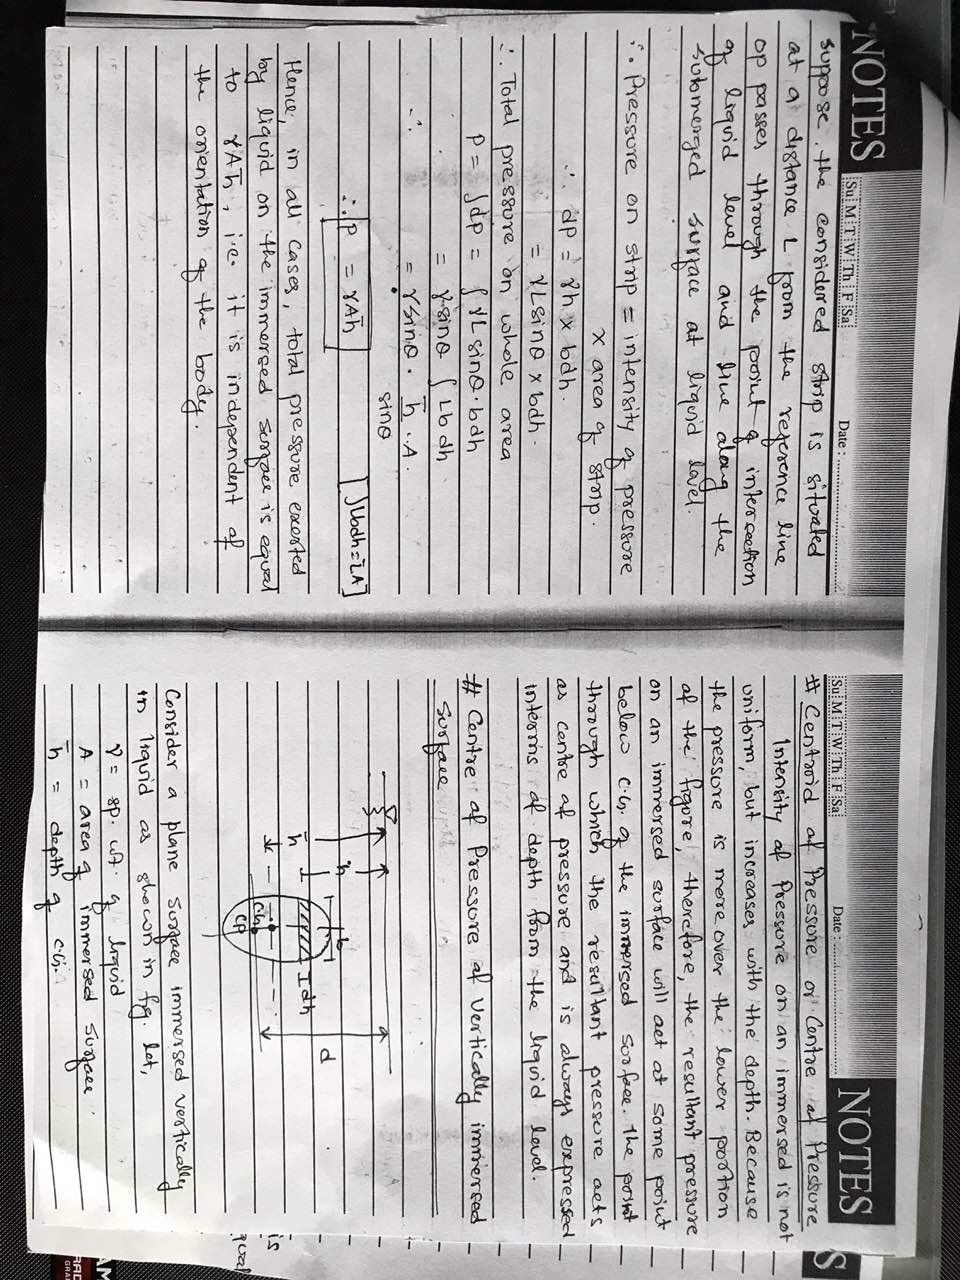 NOTES
Su M T W Th F Sa
Date :
suppose, the considered strip is situated
at a distance L from the reference line
op passes through the point of intersection
of liquid level and line along the
submerged surface at liquid level.
∴ Pressure on strip = intensity of pressure
x area of strip.
∴ dp = γh x bdh.
= γLsinθ x bdh.
∴ Total pressure on whole area
P = ∫dp = ∫γL sinθ·bdh
= γsinθ ∫Lb dh
∴ = γsinθ · h̄/sinθ · A. [∫Lbdh = L̄A]
∴ P = γAh̄
Hence, in all cases, total pressure exerted
by liquid on the immersed surface is equal
to γAh̄, i.e. it is independent of
the orientation of the body.
Su M T W Th F Sa
Date :
NOTES
# Centroid of Pressure or Centre of Pressure
Intensity of Pressure on an immersed is not
uniform, but increases with the depth. Because
the pressure is more over the lower portion
of the figure, therefore, the resultant pressure
on an immersed surface will act at some point
below C.G. of the immersed surface. The point
through which the resultant pressure acts
as centre of pressure and is always expressed
interms of depth from the liquid level.
# Centre of Pressure of Vertically immersed
surface
h
h̄
b
dh
d
C.G.
CP
Consider a plane surface immersed vertically
in liquid as shown in fig. let,
γ = sp. wt. of liquid
A = area of immersed surface.
h̄ = depth of C.G.
S
is